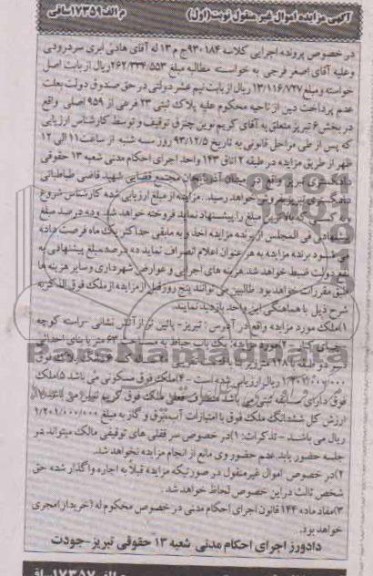 آگهی مزایده اموال غیر منقول نوبت (اول) م الف ۱۷۳۵۹ساقی
در خصوص پرونده اجرایی کلاسه ۹۳۰۱۸۴ج م ۱۳ له آقای هادی ابری سردرودی
وعلیه آقای اصغر فرجی به خواسته مطالبه مبلغ ۲۶۲/۳۳۴/۵۵۳ ریال از بابت اصل
خواسته ومبلغ ۱۳/۱۱۶/۷۲۷ ریال از بابت نیم عشر دولتی در حق صندوق دولت بعلت
عدم پرداخت دین از ناحیه محکوم علیه پلاک ثبتی ۲۳ فرعی از ۹۵۹ اصلی واقع
در بخش ۶ تبریز متعلق به آقای کریم نوین چنرق توقیف و توسط کارشناس ارزیابی
که پس از طی مراحل قانونی به تاریخ ۹۳/۱۲/۵ روز سه شنبه از ساعت ۱۱ الی ۱۲
ظهر از طریق مزایده در طبقه ۲ اتاق ۱۴۳ واحد اجرای احکام مدنی شعبه ۱۳ حقوقی
دادگستری تبریز واقع در آذربایجان مجتمع قضایی شهید قاضی طباطبائی
دادگستری تبریز بفروش خواهد رسید. مزایده از مبلغ ارزیابی شده کارشناس شروع
مبلغ را پیشنهاد نماید فروخته خواهد شد. وده درصد مبلغ
پیشنهادی فی المجلس از برنده مزایده اخذ و به مابقی حداکثر یک ماه فرصت داده
می شود برنده مزایده به هر عنوان اعلام انصراف نماید ده درصد مبلغ پیشنهادی به
نفع دولت ضبط خواهد شد. هزینه های اجرایی و عوارض شهرداری وسایر هزینه ها
طبق مقررات خواهد بود. طالبین می توانند پنج روز قبل از مزایده از ملک فوق الذکر به
شرح ذیل با هماهنگی این واحد بازدید نمایند.
۱)ملک مورد مزایده واقع در آدرس : تبریز- پائین تر از آتش نشانی -راسته کوچه
۲)مورد مزایده: یک باب حیاط به مساحت ۶۳ متر با بنای احداثی
۱/۲۰۱/۰۰۰/۰۰۰ ریال ارزیابی شده است -۴)ملک فوق مسکونی می باشد ۵)ملک
فوق دارای سابقه ثبتی می باشد متصرف فعلی ملک فوق کریم
ارزش کل ششدانگ ملک فوق با امتیازات آب، برق و گاز به مبلغ ۱/۲۰۱/۰۰۰/۰۰۰
ریال می باشد - تذکرات: ۱)در خصوص سر قفلی های توقیفی مالک میتواند در
جلسه حضور یابد عدم حضور وی مانع از انجام مزایده نخواهد شد.
۲)در خصوص اموال غیر منقول در صورتیکه مزایده قبلاً به اجاره واگذار شده حق
شخص ثالث در این خصوص لحاظ خواهد شد.
۳)مفاد ماده ۱۴۴ قانون اجرای احکام مدنی در خصوص محکوم له (خریدار)مجری
خواهد بود.
دادورز اجرای احکام مدنی شعبه ۱۳ حقوقی تبریز -جودت
ParsNamadData